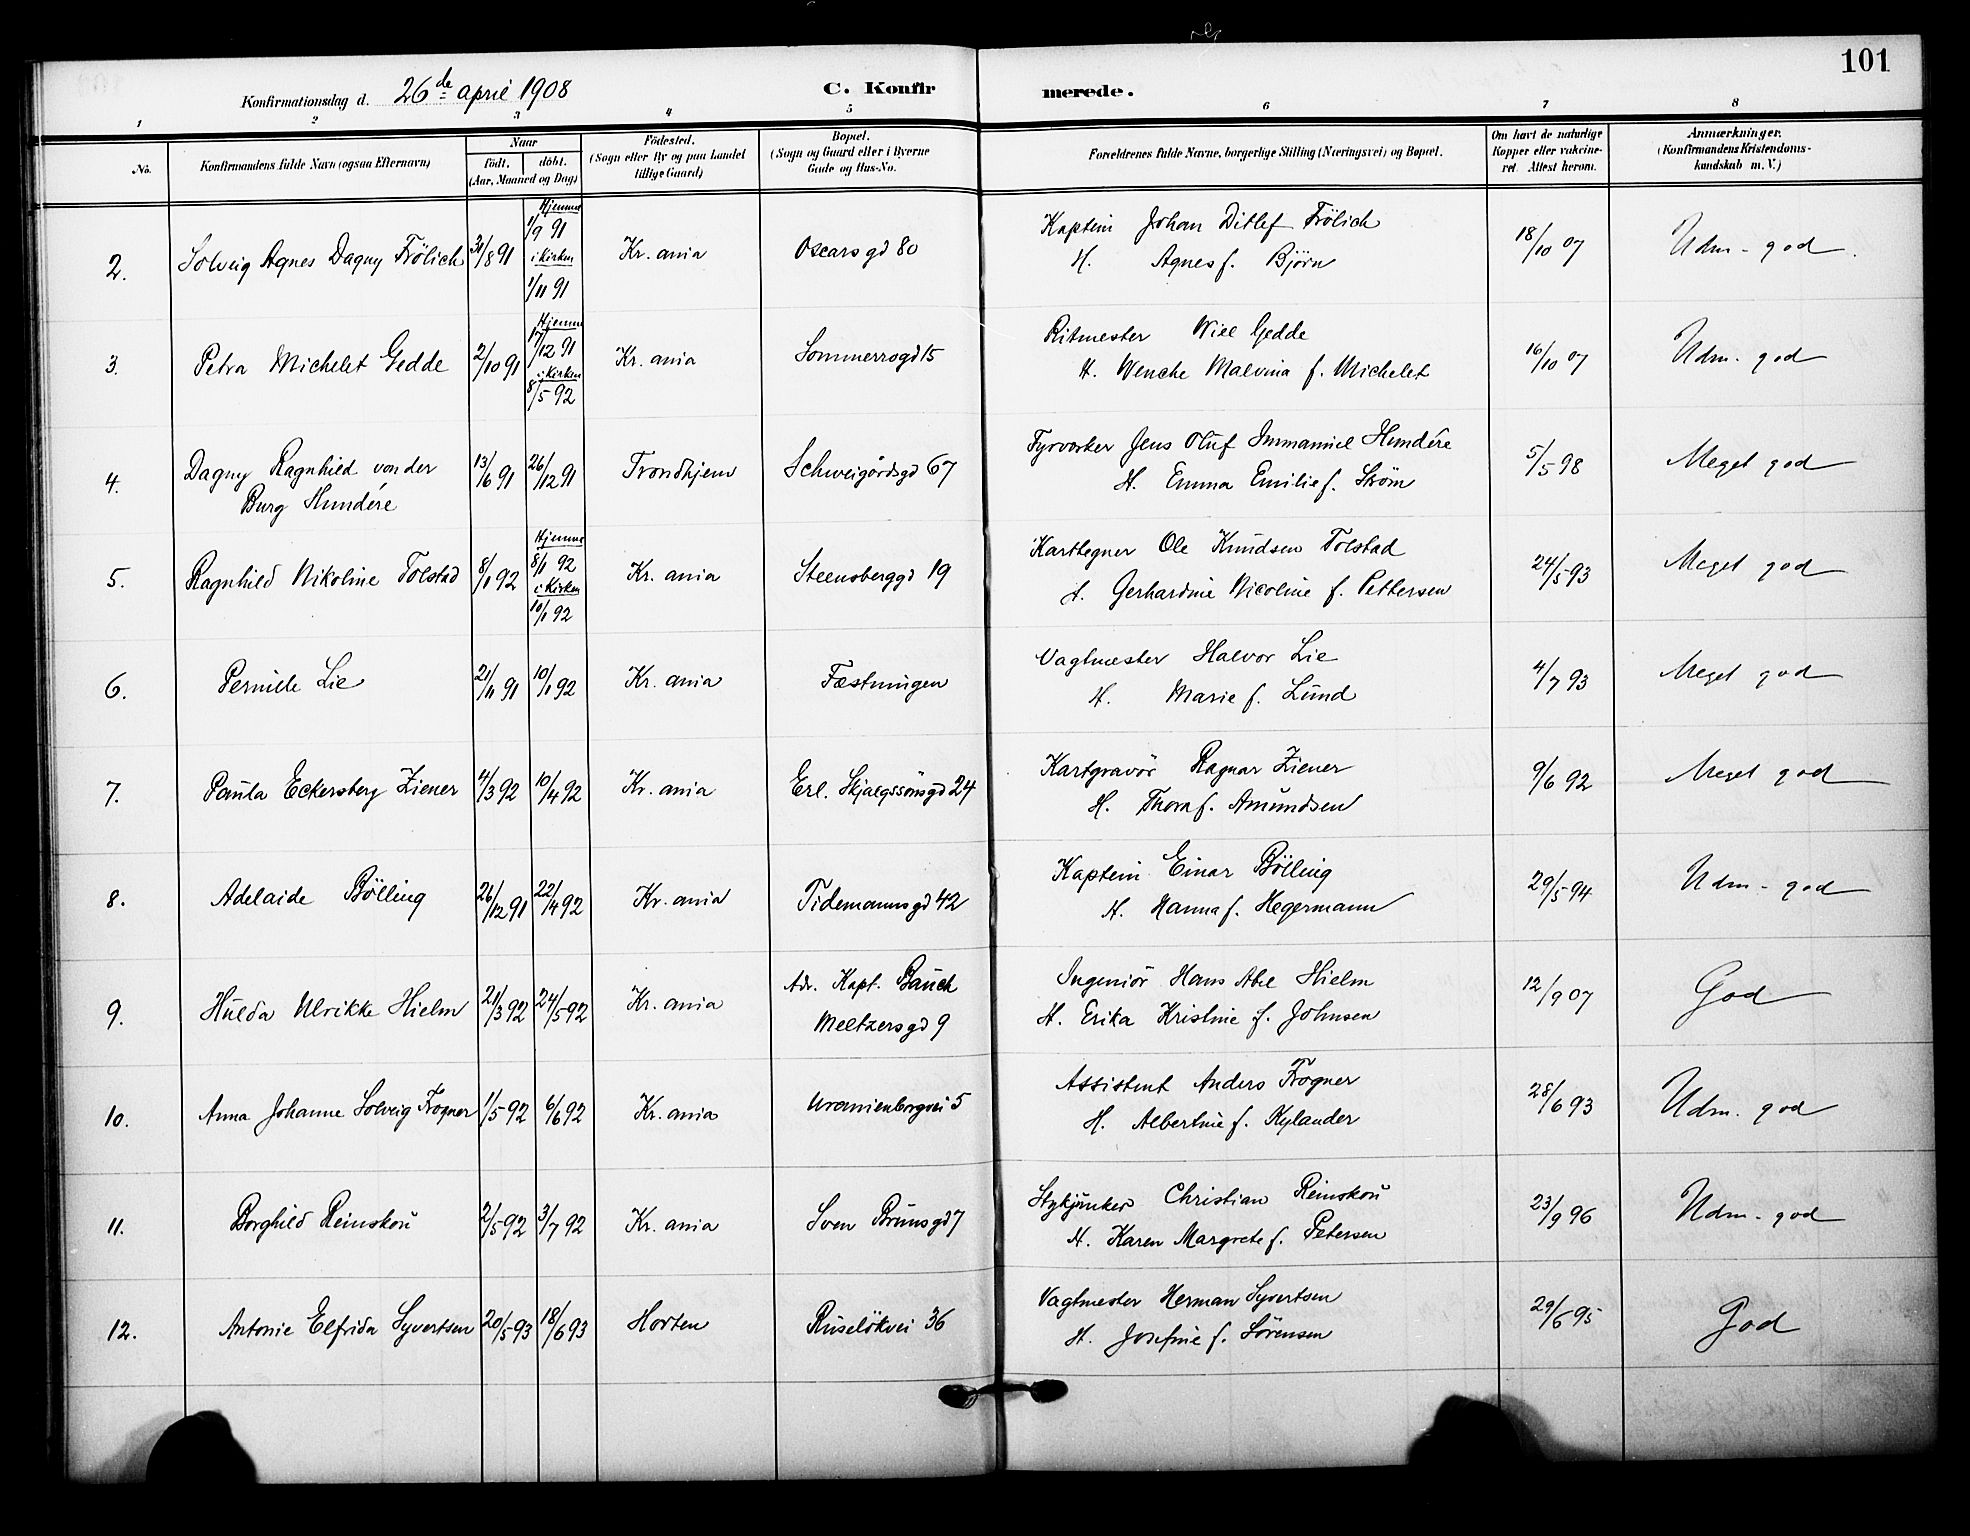 101
Konfirmationsdag d. 26de april 1908
C. Konfirmerede.
1 2 3 4 5 6 7 8
No.
Konfirmandens fulde Navn (ogsaa Efternavn)
Naar
födt. döbt.
(Aar, Maaned og Dag)
Födested.
(Sogn eller By og paa Landet
tillige Gaard)
Bopæl.
(Sogn og Gaard eller i Byerne
Gade og Hus-No.
Forældrenes fulde Navne, borgerlige Stilling (Næringsvei) og Bopæl.
Om havt de naturlige
Kopper eller vakcine-
ret. Attest herom.
Anmærkninger.
(Konfirmandens Kristendoms-
kundskab m. V.)
2. Solveig Agnes Dagny Frölich 31/8 91 Hjemme 1/9 91 i Kirken 1/11 91 Kr.ania Oscarsgd 80 Kaptein Johan Ditlef Frölich 18/10 07 Udm - god
H. Agnes f. Björn
3. Petra Michelet Gedde 2/10 91 Hjemme 17/12 91 i Kirken 8/5 92 Kr.ania Sommerrogd 15 Ritmester Will Gedde 16/10 07 Udm. god
H. Wenche Malvina f. Michelet
4. Dagny Ragnhild von der 13/6 91 26/12 91 Trondhjem Schweigårdsgd 67 Fyrvorker Jens Oluf Immanuel Hundére 5/5 98 Meget god
Burg Hundére H. Emma Emilie f. Ström
5. Ragnhild Nikoline Tolstad 8/1 92 Hjemme 8/1 92 i Kirken 10/1 92 Kr.ania Steensberggd 19 Karttegner Ole Knudsen Tolstad 24/5 93 Meget god
H. Gerhardine Nicoline f. Pettersen
6. Pernille Lie 21/11 91 10/1 92 Kr.ania Fæstningen Vagtmester Halvor Lie 4/7 93 Meget god
H. Marie f. Lund
7. Paula Eckersberg Ziener 4/3 92 10/4 92 Kr.ania Erl. Skjalgssönsgd 24 Kartgravör Ragnar Ziener 9/6 92 Meget god
H. Thora f. Amundsen
8. Adelaide Bölling 26/12 91 22/4 92 Kr.ania Tidemannsgd 42 Kaptein Einar Bölling 29/5 94 Udm - god
H. Hanna f. Hegermann
9. Hulda Ulrikke Hielm 21/3 92 24/5 92 Kr.ania Adr. Kapt. Bauck Ingeniör Hans Abel Hielm 12/9 07 God
Meltzersgd 9 H. Erika Kristine f. Johnsen
10. Anna Johanne Solveig Frogner 1/5 92 6/6 92 Kr.ania Uranienborgvei 5 Assistent Anders Frogner 28/6 93 Udm. god
H. Albertine f. Kylander
11. Borghild Reinskou 2/5 92 3/7 92 Kr.ania Sven Brunsgd 7 Stykjunker Christian Reinskou 23/9 96 Udm - god
H. Karen Margrete f. Petersen
12. Antonie Elfrida Syvertsen 20/5 93 18/6 93 Horten Ruselökvei 36 Vagtmester Herman Syvertsen 29/6 95 God
H. Josefine f. Sörensen